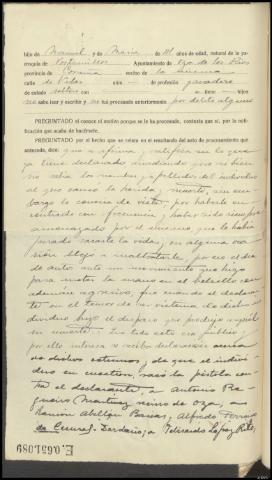 hijo de Manuel y de Maria de 21 años de edad, natural de la pa-
rroquia de Ayuntamiento de Oza de los Rios
provincia de Coruña vecino de la misma
calle de núm. — de profesión
de estado soltero con — y tiene — hijos
no sabe leer y escribir y no fué procesado anteriormente por delito alguno
PREGUNTADO si conoce el motivo porque se le ha procesado, contesta que sí, por la noti-
ficación que acaba de hacérsele.
PREGUNTADO por el hecho que se relata en el resultando del auto de procesamiento que
antecede, dice: que se afirma y ratifica en lo que
ya tiene declarado añadiendo que si bien
no sabía los nombres y apellidos del individuo
al que causó la herida y muerte, sin em-
bargo le conocía de vista por haberle en-
contrado con frecuencia y haber sido siempre
amenazado por el mismo, que le había
jurado sacarle la vida, y en alguna oca-
sión llegó a maltratarle, por eso el día
de autos ante un movimiento que hizo
para meter la mano en el bolsillo con
ademán agresivo, fué cuando el declaran-
te en el temor de ser víctima de dicho in-
dividuo hizo el disparo que produjo a aquél
su muerte. Que todo esto era público y
por ello interesa se reciba declaración acerca
de dichos extremos y de que el indivi-
duo en cuestión, sacó la pistola con-
tra el declarante, a Antonio Re-
gueiro Martínez vecino de Oza, a
Ramón Abelleira Alfredo Ferreiro
de a Felisardo López
E.0.651.089